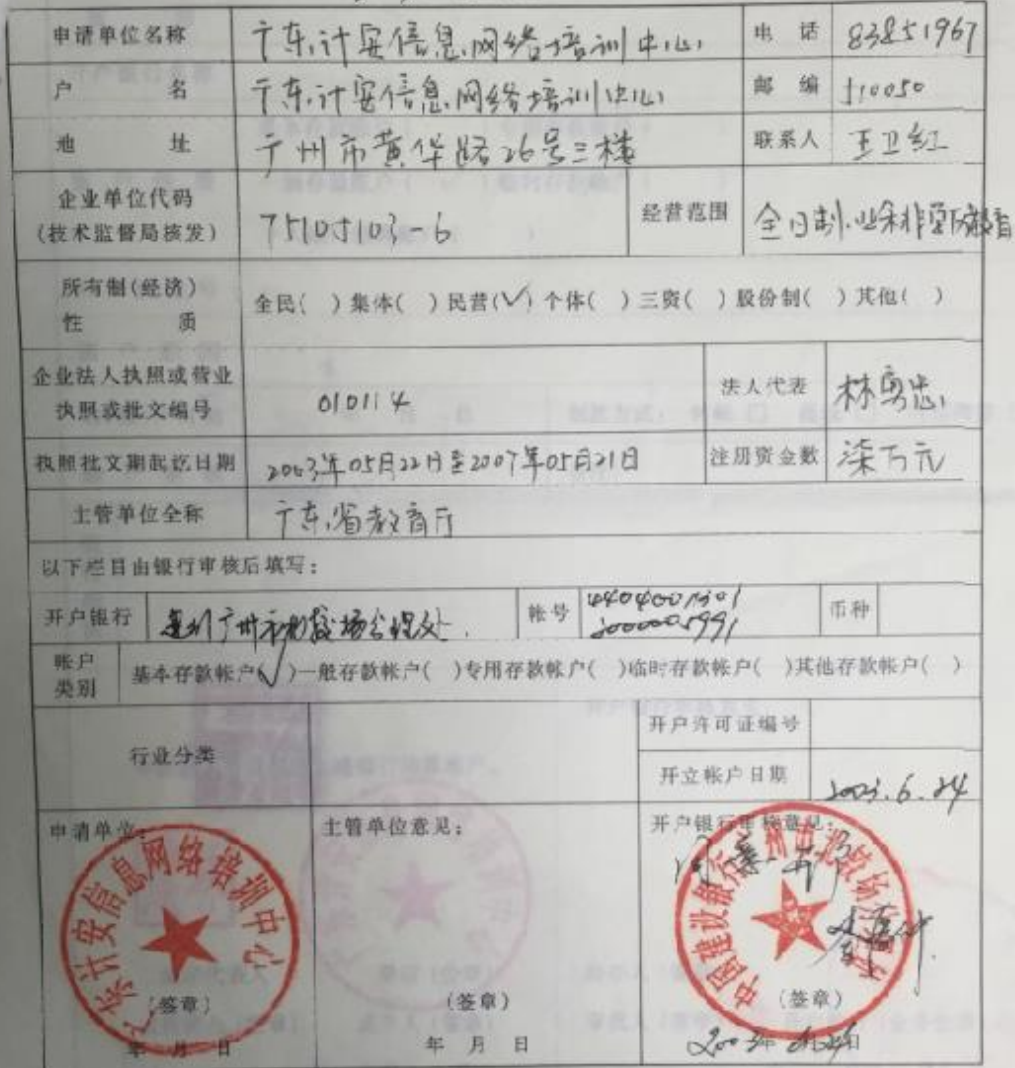 申请单位名称 广东计安信息网络培训中心 电话 83851967
户名 广东计安信息网络培训中心 邮编 510050
地址 广州市黄华路26号三楼 联系人 王卫红
企业单位代码
(技术监督局核发) 75105103-6 经营范围 全日制、业余非学历教育
所有制(经济)
性质 全民( )集体( )民营(√)个体( )三资( )股份制( )其他( )
企业法人执照或营业
执照或批文编号 010114 法人代表 林勇忠
执照批文期起讫日期 2003年05月22日至2007年05月21日 注册资金数 柒万元
主管单位全称 广东省教育厅
以下栏目由银行审核后填写:
开户银行 建行广州市 帐号 44040001301
2000005991 币种
帐户
类别 基本存款帐户(√)一般存款帐户( )专用存款帐户( )临时存款帐户( )其他存款帐户( )
行业分类 开户许可证编号
开立帐户日期 2003.6.24
申请单位: 主管单位意见: 开户银行审核意见:
广东计安信息网络培训中心
中国建设银行广州市北教场
同意开户
(签章) (签章) (签章)
年 月 日 年 月 日 2003年6月24日